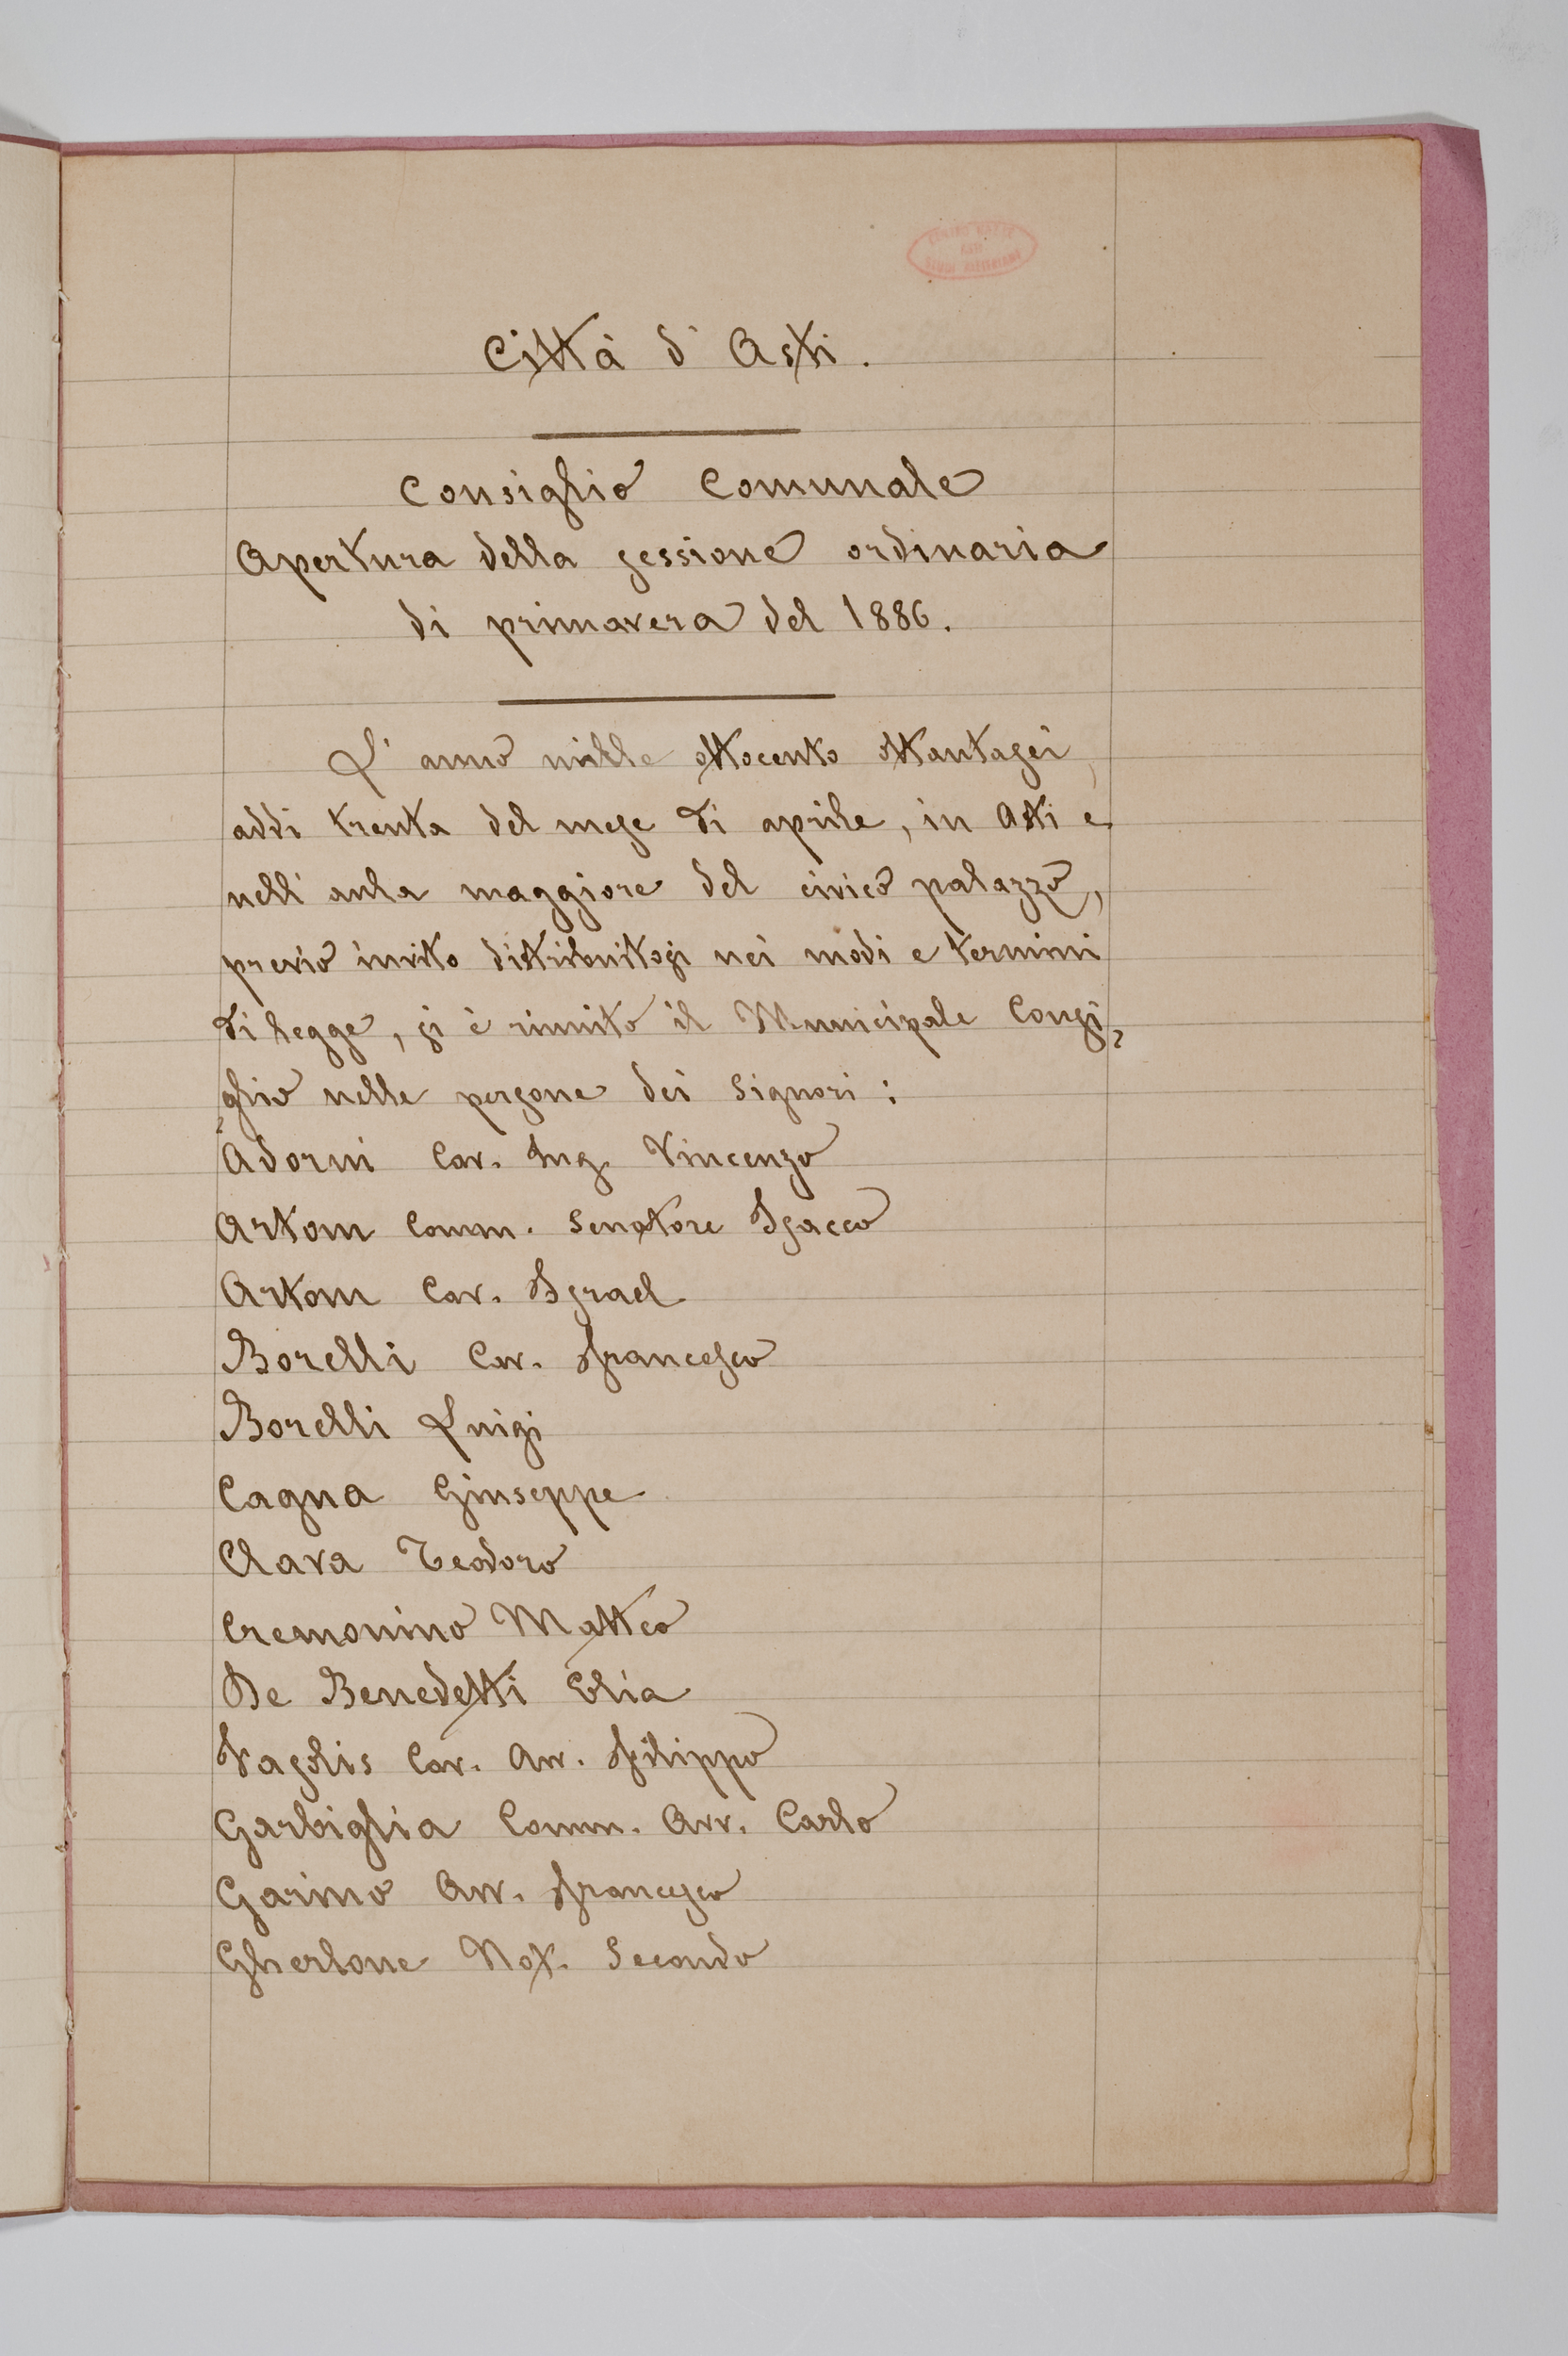 CENTRO NAZ.LE
STUDI ALFIERIANI
Città d'Asti.
Consiglio Comunale
Apertura della sessione ordinaria
di primavera del 1886.
L'anno mille ottocento ottantasei,
addi trenta del mese di aprile, in Asti e
nell'aula maggiore del civico palazzo,
previo invito distribuitosi nei modi e termini
di legge, si è riunito il Municipale Consi,
,glio nelle persone dei Signori:
Adorni Cav. Ing. Vincenzo
Artom Comm. Senatore Isacco
Artom Cav. Israel
Borelli Cav. Francesco
Borelli Luigi
Cagna Giuseppe
Clava Teodoro
Cremonino Matteo
De Benedetti Elia
Fasolis Cav. Avv. Filippo
Garbiglia Comm. Avv. Carlo
Garino Avv. Francesco
Gherlone Not. Secondo